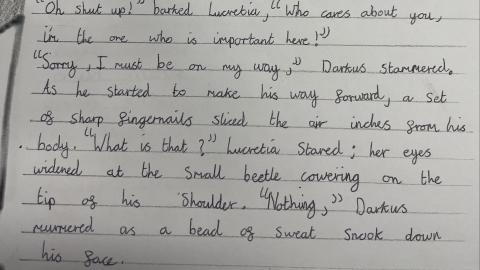 "Oh shut up!" barked Lucretia, "Who cares about you,
im the one who is important here!"
"Sorry, I must be on my way," Darkus stammered.
As he started to make his way forward, a set
of sharp fingernails sliced the air inches from his
body. "What is that?" Lucretia Stared; her eyes
widened at the small beetle cowering on the
tip of his Shoulder. "Nothing," Darkus
murmered as a bead of sweat snook down
his face.